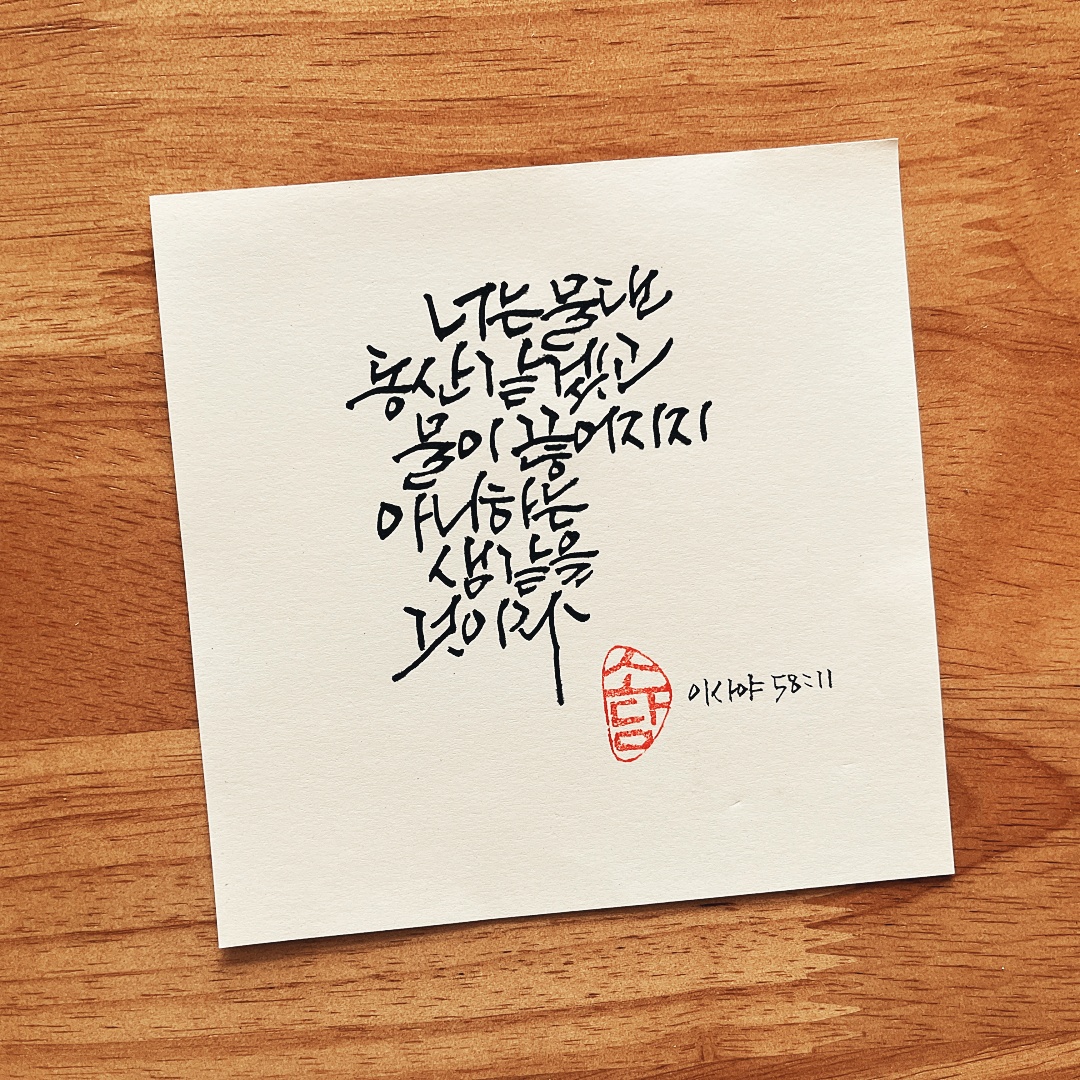 너는 물댄
동산 같겠고
물이 끊어지지
아니하는
샘 같을
것이라
소담
이사야 58:11